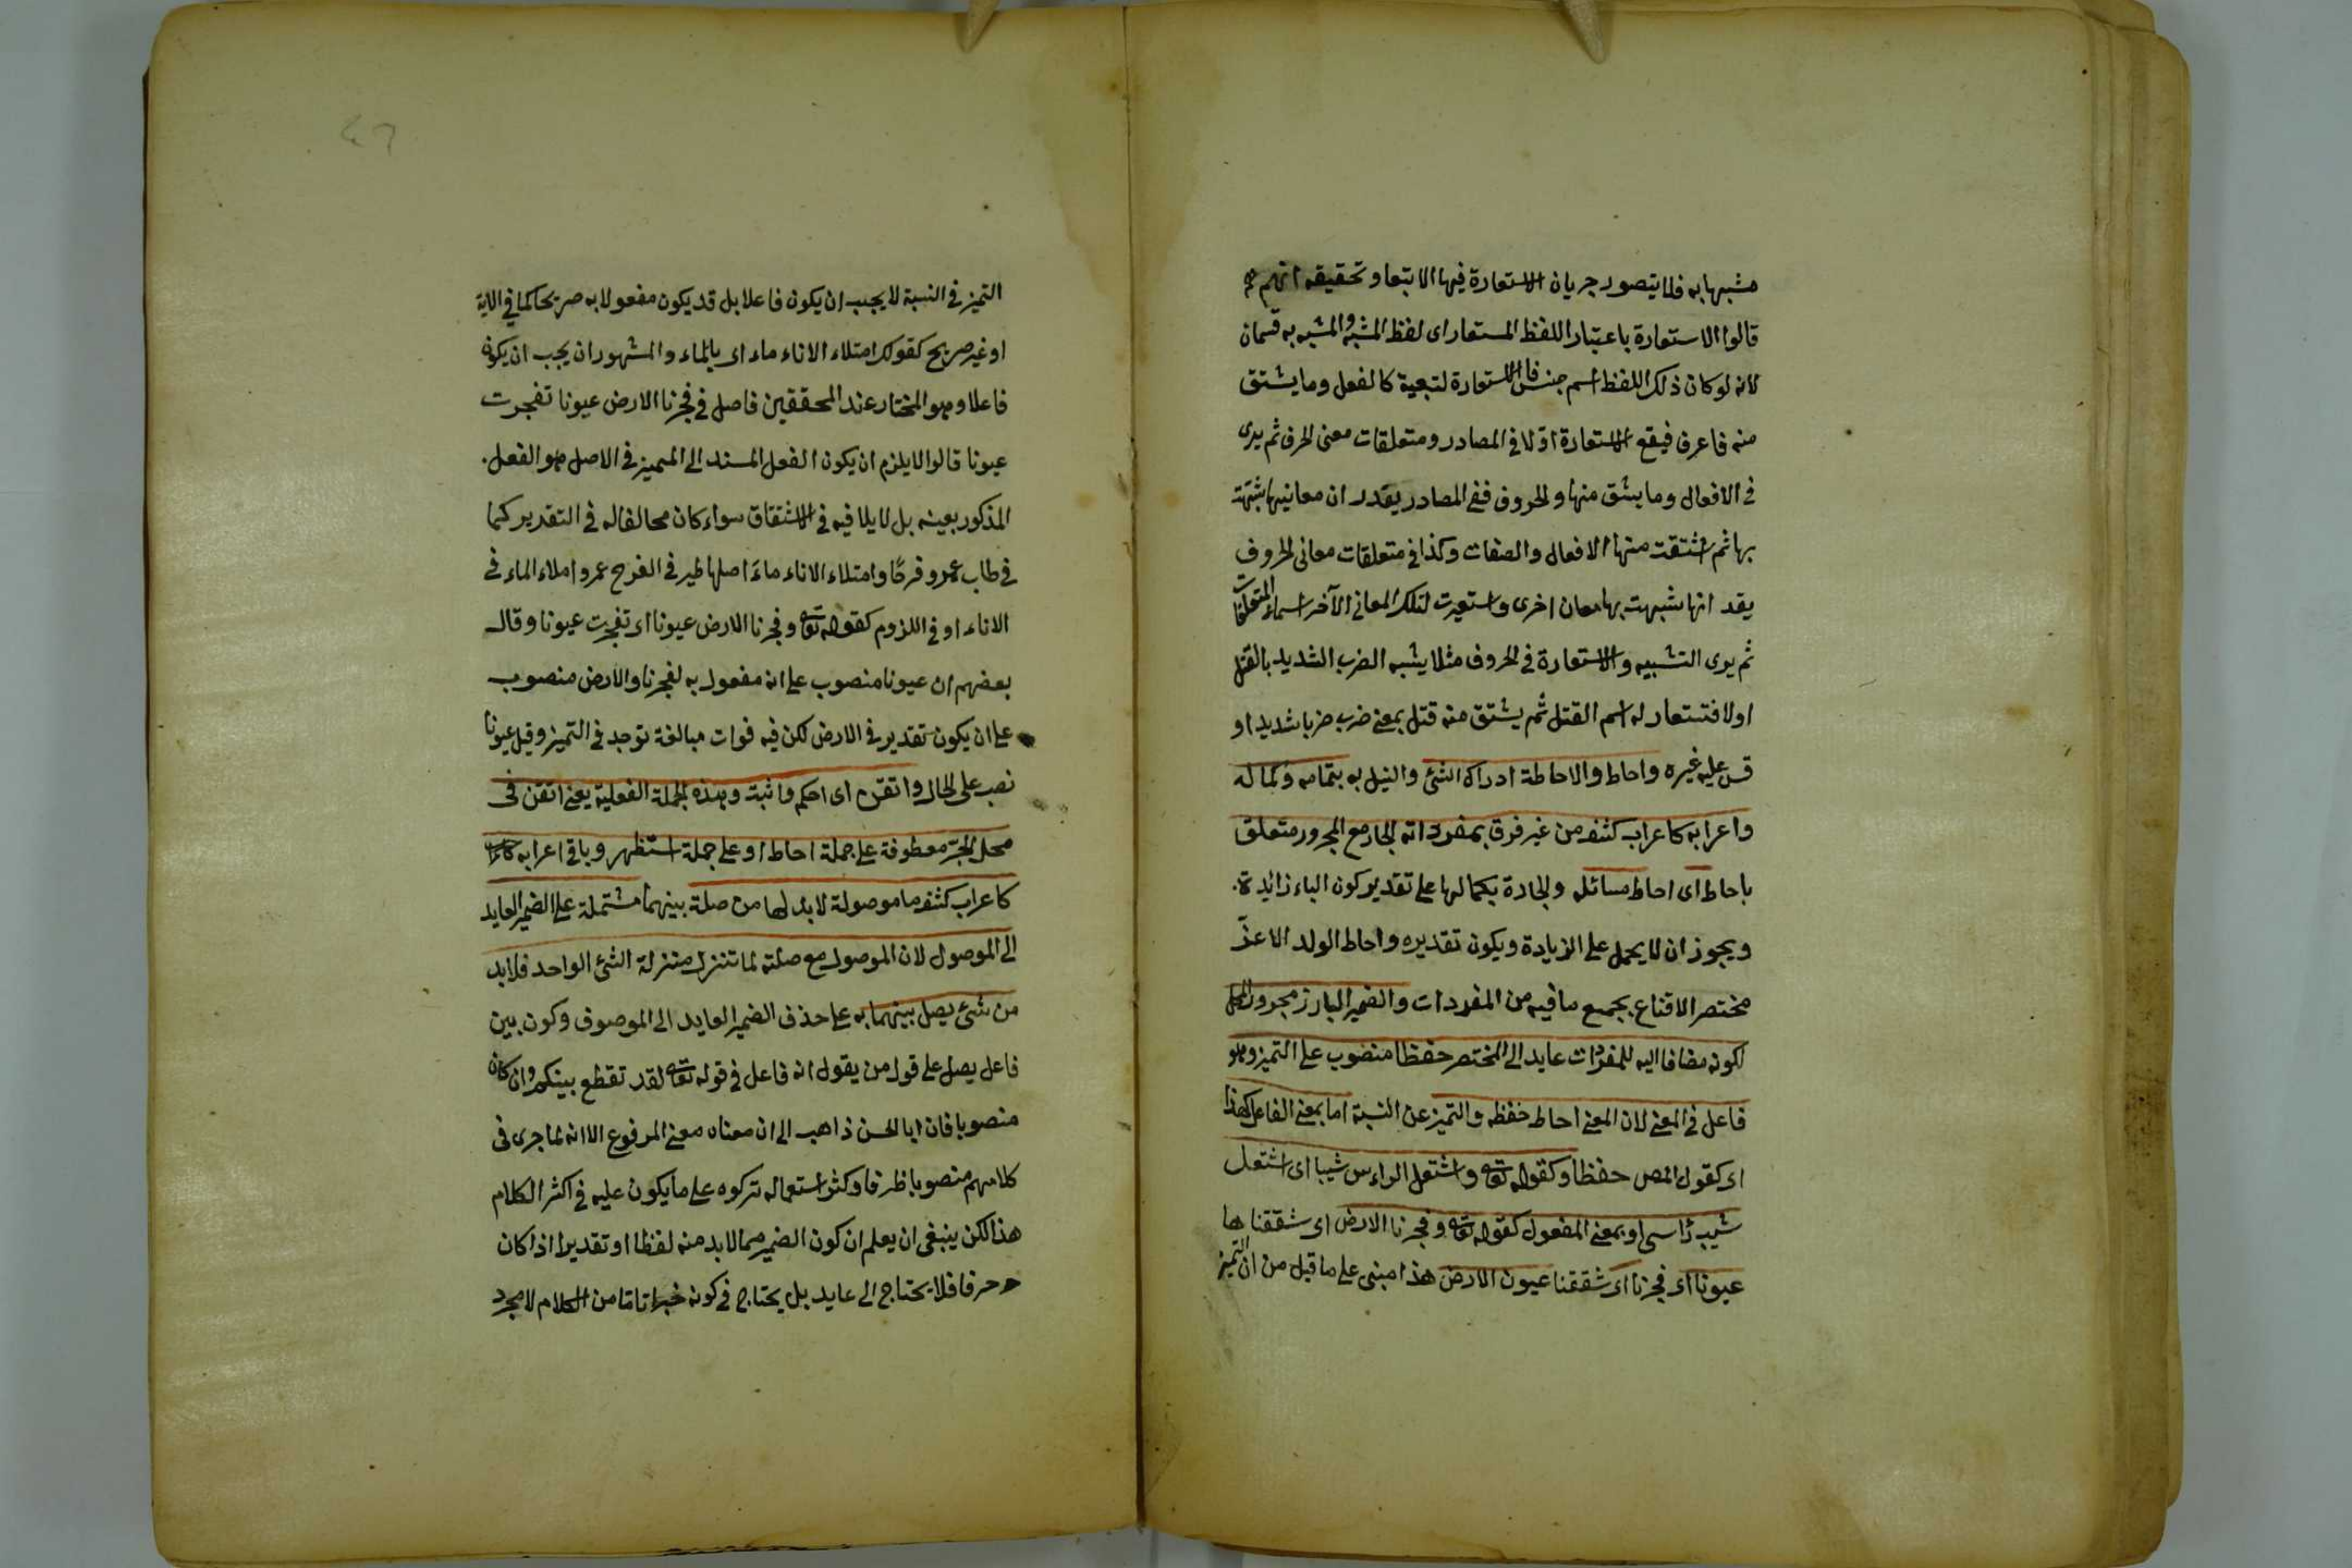 مشبها به فلا يتصور جريان الاستعارة فيها الا بتعا وتحقيقه انهم
قالوا الاستعارة باعتبار اللفظ المستعار اى لفظ المشبه والمشبه به قسمان
لانه لو كان ذلك اللفظ اسم جنس فالاستعارة لتبعية كالفعل وما يشتق
منه فاعرف فيقع الاستعارة اولا فى المصادر ومتعلقات معنى الحرف ثم يرى
فى الافعال وما يشق منها والحروف ففى المصادر يقدر ان معانيها شبهت
بها ثم اشتقت منها الافعال والصفات وكذا فى متعلقات معانى الحروف
يقد انها شبهت بها معان اخرى واستعيرت لتلك المعانى الآخر اسماء المتعلقات
ثم يرى التشبيه والاستعارة فى الحروف مثلا يشبه الضرب الشديد بالقتل
اولا فتستعار له اسم القتل ثم يشتق منه قتل بمعنى ضرب ضربا شديدا و
قس عليه غيره واحاط والاحاطة ادراك الشئ والنيل به بتمامه وكماله
واعرابه كاعراب كثف من غير فرق بمفرداته الجار مع المجرور متعلق
باحاط اى احاط مسائله والجادة بكمالها على تقدير كون الباء زائدة.
ويجوز ان لا يحمل على الزيادة ويكون تقديره واحاط الولد الاعز
مختصر الاقناع بجميع ما فيه من المفردات والضمير البارز مجرور المحل
لكونه مضافا اليه للمفردات عايد الى المختصر حفظا منصوب على التميز وهو
فاعل فى المعنى لان المعنى احاط حفظه والتميز عن النسبة اما بمعنى الفاعل كهذا
اى كقول المص حفظا وكقوله تعالى واشتعل الراءس شيبا اى اشتعل
شيب رأسى او بمعنى المفعول كقوله تعالى وفجرنا الارض اى شققناها
عيونا اى فجرنا اى شققنا عيون الارض هذا مبنى على ما قيل من ان التميز
٤٦
التميز فى النسبة لا يجب ان يكون فاعلا بل قد يكون مفعولا به صريحا كما فى الاية
او غير صريح كقولك امتلاء الاناء ماء اى بالماء والمشهور ان يجب ان يكون
فاعلا وهو المختار عند المحققين فاصل فى فجرنا الارض عيونا تفجرت
عيونا قالوا لا يلزم ان يكون الفعل المسند الى المميز فى الاصل هو الفعل.
المذكور بعينه بل لا يلافيه فى الاشتقاق سواء كان مخالفا له فى التقدير كما
فى طاب عمرو فرحا وامتلاء الاناء ماء اصلها طير فى الفرح عمرو املاء الماء فى
الاناء او فى اللزوم كقوله تعالى وفجرنا الارض عيونا اى تفجرت عيونا وقال
بعضهم ان عيونا منصوب على انه مفعول به لفجرنا والارض منصوب
على ان يكون تقدير فى الارض لكن فيه فوات مبالغة توجد فى التميز وقيل عيونا
نصب على الحال واتقن اى احكم واثبت وهذه الجملة الفعلية يعنى اتقن فى
محل الجر معطوفة على جملة احاط او على جملة استظهر وباقى اعرابه
كاعراب كثف ما موصولة لابد لها من صلة بينهما مشتملة على الضمير العايد
الى الموصول لان الموصول مع صلته لما تنزل منزلة الشئ الواحد فلابد
من شئ يصل بينهما به على حذف الضمير العايد الى الموصوف وكون بين
فاعل يصل على قول من يقول انه فاعل فى قوله تعالى لقد تقطع بينكم وان كان
منصوبا فان ابا الحسن ذاهب الى ان معناه معنى المرفوع الا انه لما جرى فى
كلامهم منصوبا ظرفا وكثر استعماله تركوه على ما يكون عليه فى اكثر الكلام
هذا لكن ينبغى ان يعلم ان كون الضمير مما لابد منه لفظا او تقديرا اذا كان
حرفا فلا يحتاج الى عايد بل يحتاج فى كونه خبرا تاما من الكلام لا مجرد